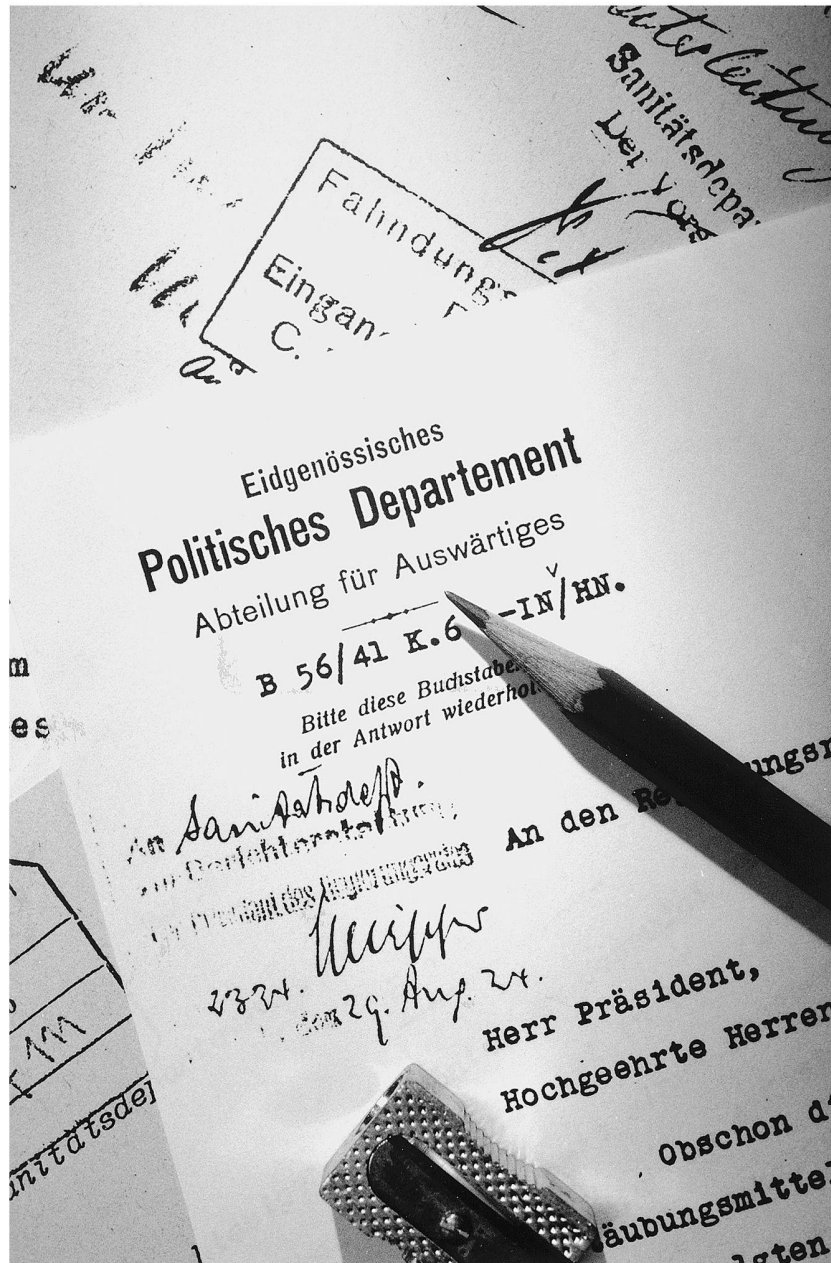 Sanitätsdepa
Der Vors
Fahndungs
Eingan
C.
Eidgenössisches
Politisches Departement
Abteilung für Auswärtiges
B 56/41 K.6 -IN/HN.
Bitte diese Buchstabe
in der Antwort wiederhol
An Sanitätsdept.
zur Berichterstattung
Der Präsident des Regierungsrates
den 29. Aug. 24.
An den Re ungsr
Herr Präsident,
Hochgeehrte Herren
Obschon di
äubungsmittel
lgten
m
es
anitätsdep